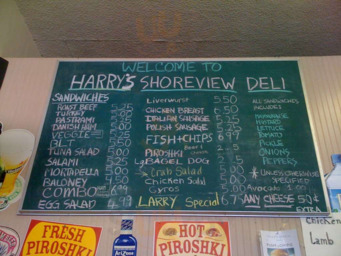 WELCOME TO
HARRY'S SHOREVIEW DELI
SANDWICHES
ROAST BEEF 5.25
TURKEY
PASTRAMI
DANISH HAM
VEGGIE
BLT 5.50
TUNA SALAD 5.00
SALAMI 5.25
MORADELLA
BALONEY
COMBO
EGG SALAD 4.99
Liverwurst 5.50
CHICKEN BREAST 6.50
ITALIAN SAUSAGE
POLISH SAUSAGE
FISH + CHIPS 6.99
PIROSHKI
LG BAGEL DOG
Crab Salad
Chicken Salad
Gyros
LARRY Special 6.75
ALL SANDWICHES
INCLUDES
MAYONNAISE
MUSTARD
LETTUCE
TOMATO
PICKLE
ONIONS
PEPPERS
* UNLESS OTHERWISE
SPECIFIED
Avocado 1.00
ANY CHEESE 50¢
EXTRA
FRESH
PIROSHKI
HOT
PIROSHKI
Chicken
Lamb